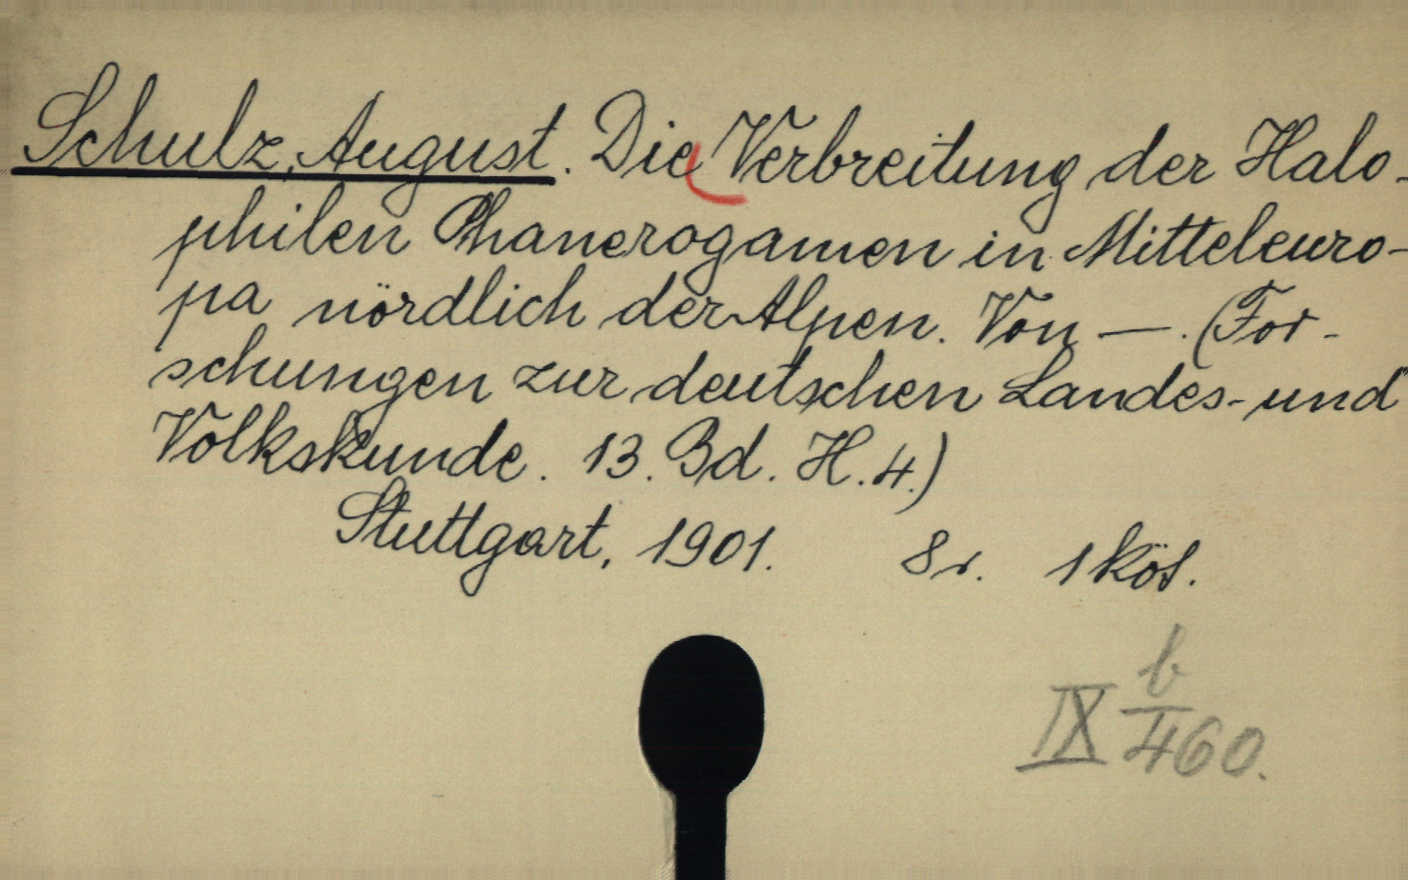 Schulz, August. Die Verbreitung der Halo-
philen Phanerogamen in Mitteleuro-
pa nördlich der Alpen. Von —. (For-
schungen zur deutschen Landes- und
Volkskunde. 13. Bd. H. 4.)
Stuttgart, 1901. 8r. 1 köt.
IX b/460.